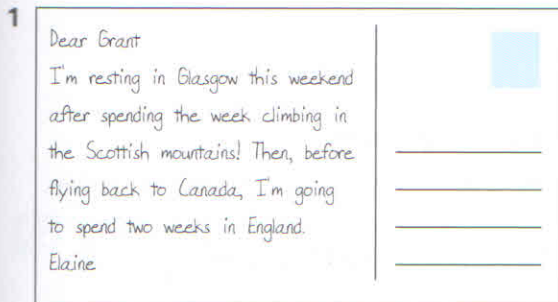 1
Dear Grant
I'm resting in Glasgow this weekend
after spending the week climbing in
the Scottish mountains! Then, before
flying back to Canada, I'm going
to spend two weeks in England.
Elaine